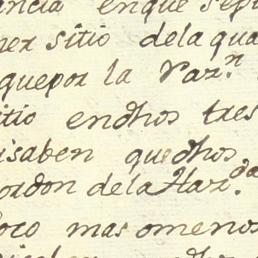 ancia enque sepu
mer sitio dela qua
quepor la raz.n
itio endhos tres
isaben quedhos
ordon dela Haz.da
oco mas omenos